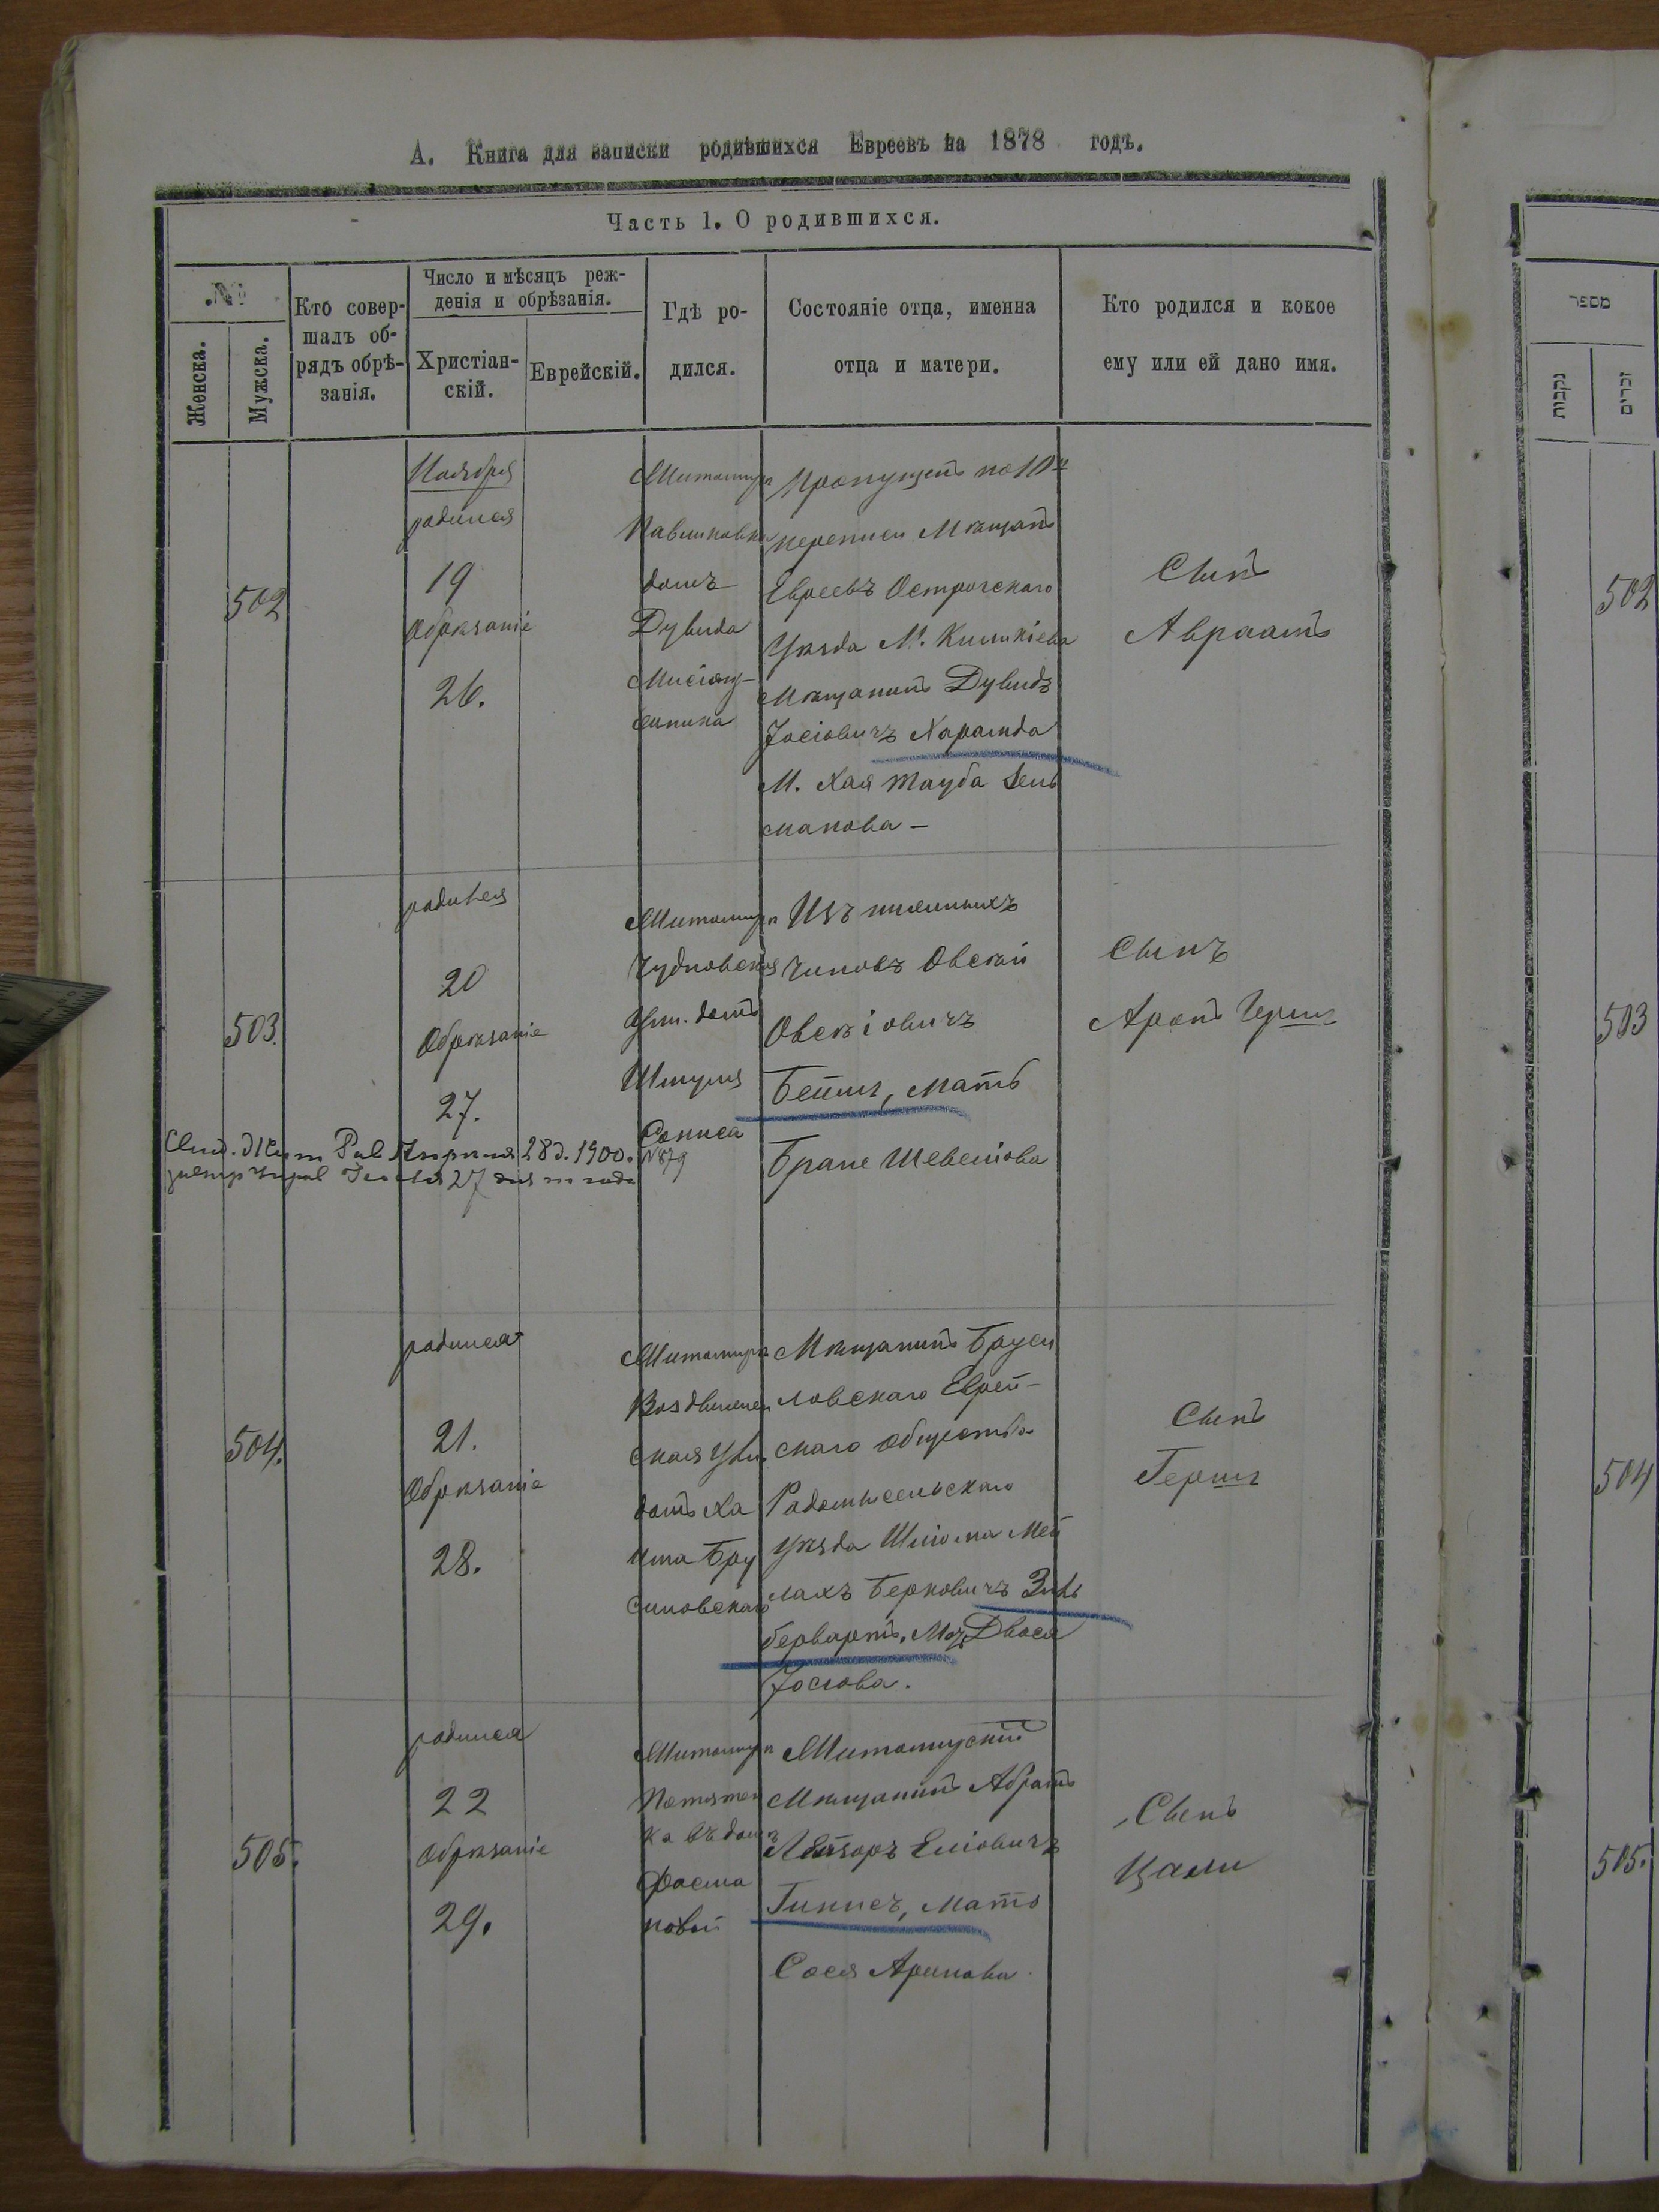 А. Книга для записки родившихся Евреевъ на 1878 годъ.
Часть 1. О родившихся.
№
Женска.
Мужска.
Кто совер-
шалъ об-
рядъ обрѣ-
занія.
Число и мѣсяцъ реж-
денія и обрѣзанія.
Христіан-
скій.
Еврейскій.
Гдѣ ро-
дился.
Состояніе отца, именна
отца и матери.
Кто родился и кокое
ему или ей дано имя.
502
Ноября
родился
19
Обрѣзаніе
26.
Житомиръ
Павликовка
домъ
Дувида
Пропущенъ по 10й
переписи Мѣщанъ
Евреевъ Острогскаго
Уѣзда М.
Мѣщанинъ Дувидъ
Іосіовичъ
М. Хая Тауба Зель
манова —
Сынъ
Авраамъ
503.
родился
20
Обрѣзаніе
27.
Житомиръ
Чудновская
домъ
Шмуля
Изъ нижнихъ
Чиновъ Овсѣй
Овсѣіовичъ
мать
Бране
Сынъ
Аронъ Герш
28 д. 1900.
№ 879
27 дня
504.
родился
21.
Обрѣзаніе
28.
Житомиръ
Воздвижен
ская Ули.
домъ Ха
има Бру
силовскаго
Мѣщанинъ Бруси
ловскаго Еврей-
скаго Общества
Радомысельскаго
Уѣзда Шліома Мей
лахъ Берковичъ Зиль
берварг. Мат. Двося
Іосіова.
Сынъ
Герш
505.
родился
22
Обрѣзаніе
29.
Житомиръ
ка въ домѣ
новой
Житомирскій
Мѣщанинъ Абрамъ
Лейзоръ Еліовичъ
мать
Сося Аронова.
Сынъ
מספר
נקבות
זכרים
502
503
504
505.